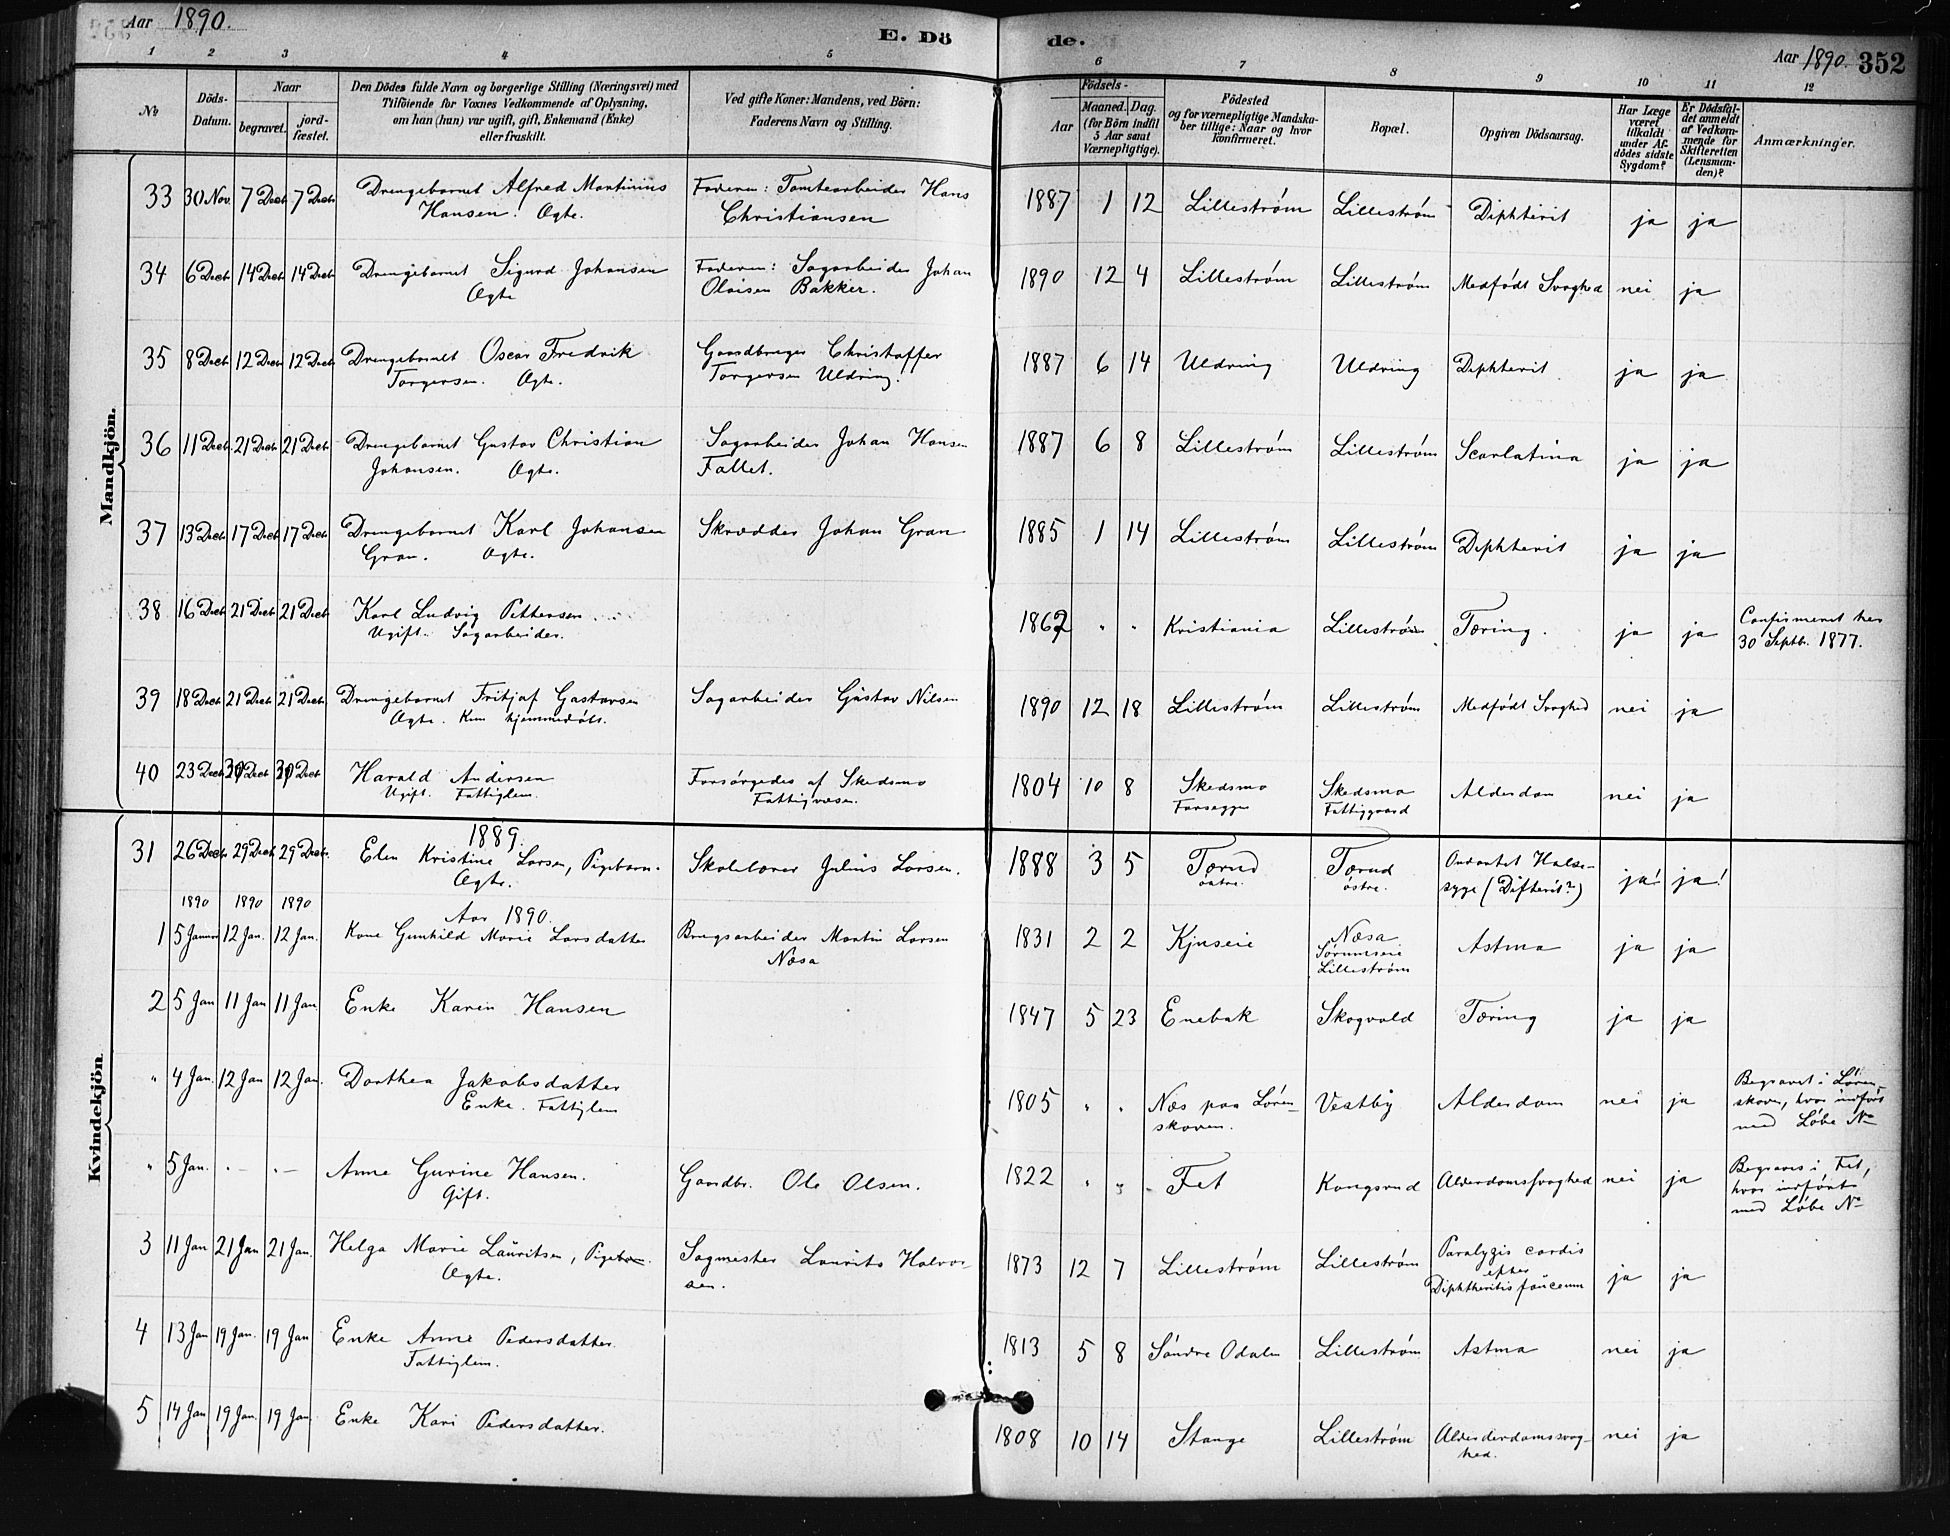 Aar 1890.
E. Dö
de.
Aar 1890. 352
1 2 3 4 5 6 7 8 9 10 11 12
No
Döds-Datum.
Naar
begravet.
jord-fæstet.
Den Dödes fulde Navn og borgerlige Stilling (Næringsvei) med
Tilföiende for Voxnes Vedkommende af Oplysning,
om han (hun) var ugift, gift, Enkemand (Enke)
eller fraskilt.
Ved gifte Koner: Mandens, ved Börn:
Faderens Navn og Stilling.
Födsels-
Aar
Maaned. Dag.
(for Börn indtil
5 Aar samt
Værnepligtige).
Födested
og for værnepligtige Mandska-
ber tillige: Naar og hvor
konfirmeret.
Bopæl.
Opgiven Dödsaarsag.
Har Læge
været
tilkaldt
under Af-
dödes sidste
Sygdom?
Er Dödsfal-
det anmeldt
af Vedkom-
mende for
Skifteretten
(Lensman-
den)?
Anmærkninger.
Mandkjön.
33 30 Nov. 7 Decb. 7 Decb. Drengebarnet Alfred Martinius Faderen: Tomtearbeider Hans 1887 1 12 Lillestrøm Lillestrøm Diphterit ja ja
Hansen. Ægte. Christiansen
34 6 Decb. 14 Decb. 14 Decb. Drengebarnet Sigurd Johansen Faderen: Sagarbeider Johan 1890 12 4 Lillestrøm Lillestrøm Medfødt Svaghed nei ja
Ægte Olaisen Bakker.
35 8 Decb. 12 Decb. 12 Decb. Drengebarnet Oscar Fredrik Gaardbruger Christoffer 1887 6 14 Uldring Uldring Diphterit. ja ja
Torgersen. Ægte. Torgersen Uldring.
36 11 Decb. 21 Decb. 21 Decb. Drengebarnet Gustav Christian Sagarbeider Johan Hansen 1887 6 8 Lillestrøm Lillestrøm Scarlatina ja ja
Johansen. Ægte. Fallet.
37 13 Decb. 17 Decb. 17 Decb. Drengebarnet Karl Johansen Skrædder Johan Gran 1885 1 14 Lillestrøm Lillestrøm Diphterit ja ja
Gran. Ægte.
38 16 Decb. 21 Decb. 21 Decb. Karl Ludvig Pettersen 1862 " " Kristiania Lillestrøm Tæring. ja ja Confirmeret her
Ugift. Sagarbeider. 30 Septb. 1877.
39 18 Decb. 21 Decb. 21 Decb. Drengebarnet Fritjof Gustavsen Sagarbeider Gustav Nilsen 1890 12 18 Lillestrøm Lillestrøm Medfødt Svaghed nei ja
Ægte. Kun hjemmedøbt.
40 23 Decb. 30 Decb. 30 Decb. Harald Andersen Forsørgedes af Skedsmo 1804 10 8 Skedsmo Skedsmo Alderdom nei ja
Ugift. Fattiglem. Fattigvæsen. Fattiggaard
Kvindekjön
1889.
31 26 Decb. 29 Decb. 29 Decb. Elen Kristine Larsen, Pigebarn. Skolelærer Julius Larsen. 1888 3 5 Tærud Tærud Ondartet Halse-
Ægte. østre. østre. syge (Difterit?) ja! ja!
1890 1890 1890 Aar 1890.
1 5 Januar 12 Jan. 12 Jan. Kone Gunhild Marie Larsdatter Brugsarbeider Martin Larsen 1831 2 2 Næsa Astma ja ja
Næsa Sørumseie
Lillestrøm
2 5 Jan 11 Jan 11 Jan. Enke Karen Hansen 1847 5 23 Enebak Skogvold Tæring ja ja
" 4 Jan. 12 Jan 12 Jan. Dorthea Jakobsdatter 1805 " " Næs paa Løren- Vestby Alderdom nei ja Begravet i Løren-
Enke. Fattiglem skoven. skoven, hvor indført
med Løbe No
" 5 Jan. " — " — Anne Gurine Hansen. Gaardbr. Ole Olsen. 1822 " " Fet Kongsrud Alderdomssvaghed nei ja Begraves i Fet,
Gift. hvor indført
med Løbe No
3 11 Jan 21 Jan 21 Jan. Helga Marie Lauritsen, Pigebarn. Sagmester Laurits Halvor- 1873 12 7 Lillestrøm Lillestrøm Paralysis cordis ja ja
Ægte. sen. efter
Diphtheritis faucium
4 13 Jan 19 Jan. 19 Jan Enke Anne Pedersdatter 1813 5 8 Søndre Odalen Lillestrøm Astma nei ja
Fattiglem.
5 14 Jan 19 Jan. 19 Jan. Enke Kari Pedersdatter. 1808 10 14 Stange Lillestrøm Alderderdomssvag- nei ja
hed.